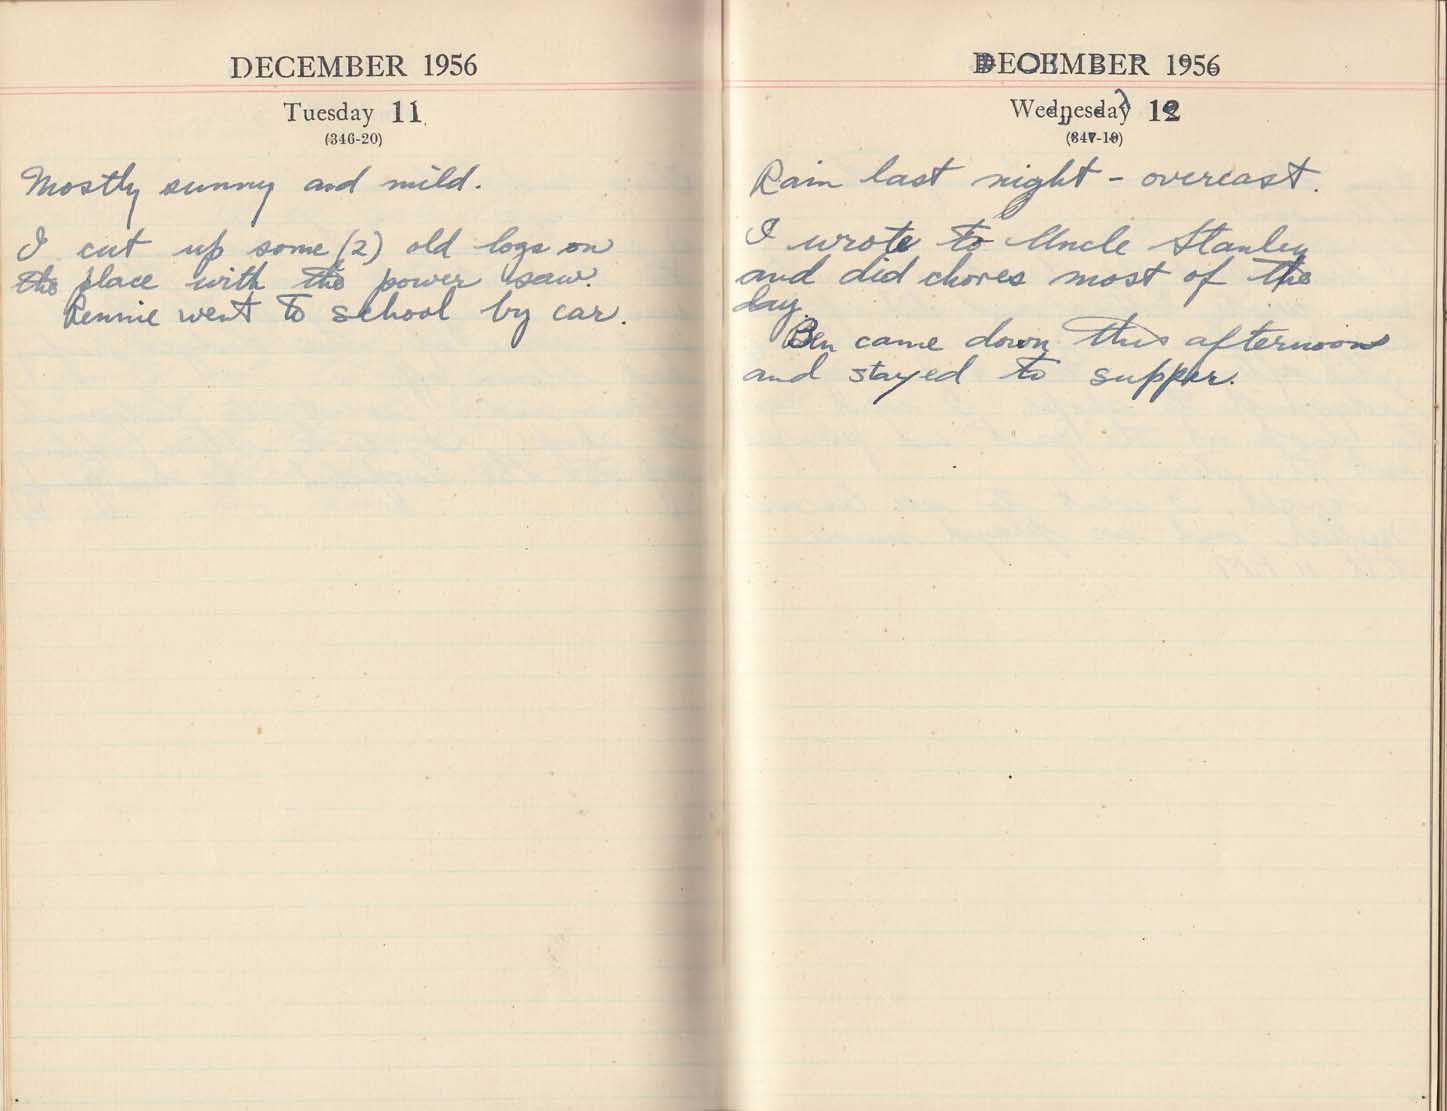 DECEMBER 1956
Tuesday 11
(346-20)
Mostly sunny and mild.
I cut up some (2) old logs on
the place with the power saw.
Rennie went to school by car.
DECEMBER 1956
Wednesday 12
(347-19)
Rain last night - overcast.
I wrote to Uncle Stanley
and did chores most of the
day.
Ben came down this afternoon
and stayed to supper.